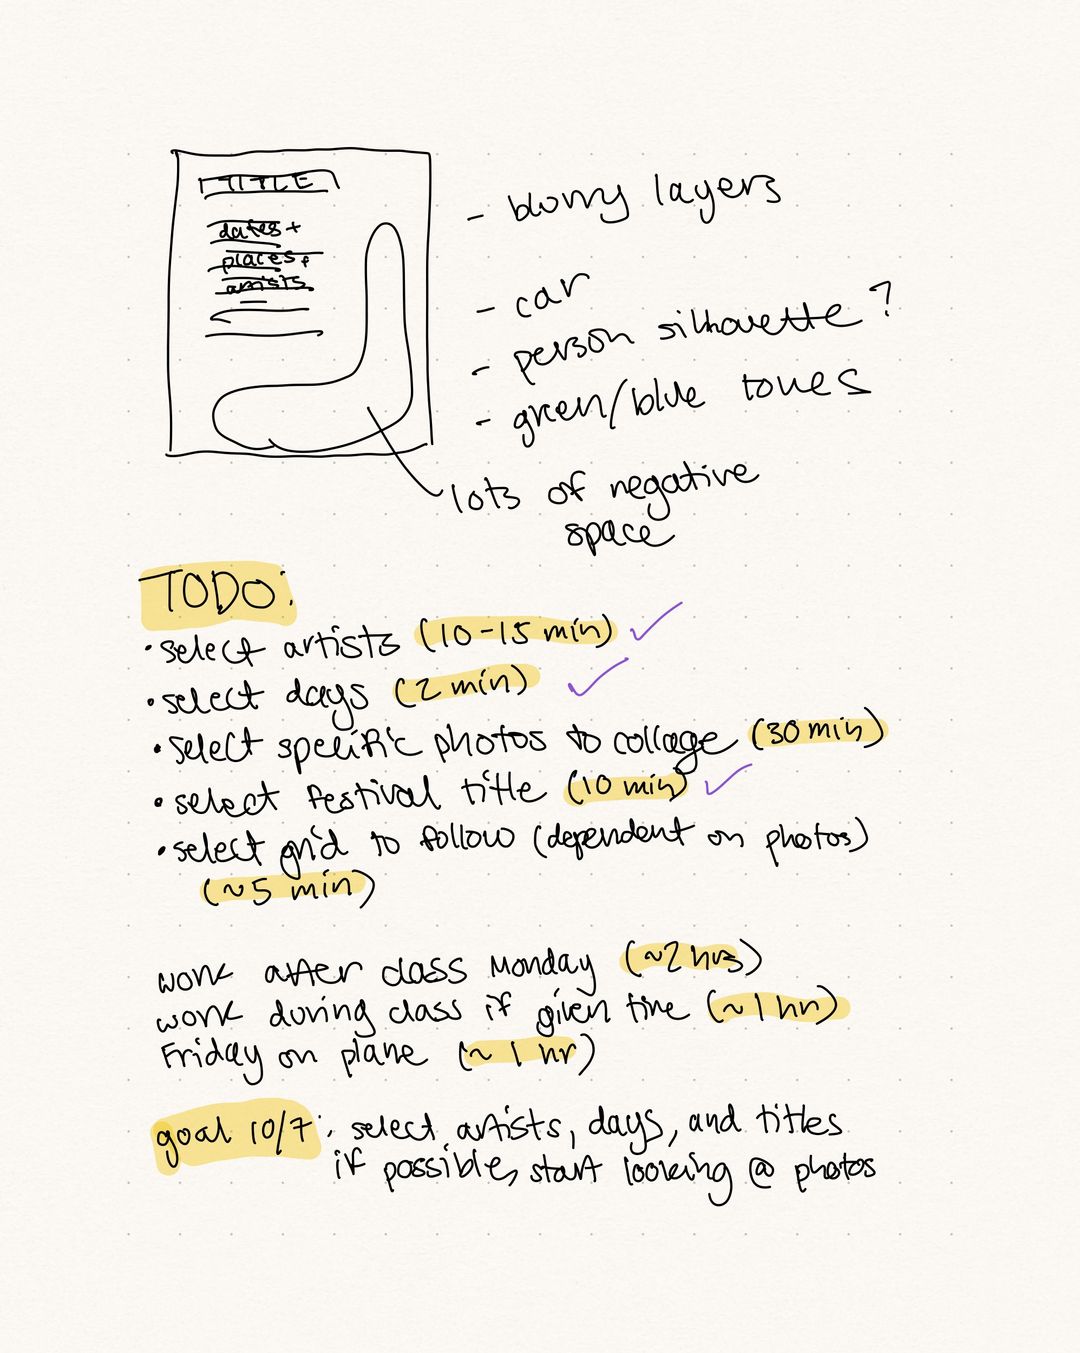 TITLE
dates +
places +
artists
- blurry layers
- car
- person silhouette?
- green/blue tones
lots of negative
space
TODO:
• select artists (10-15 min) ✓
• select days (2 min) ✓
• select specific photos to collage (30 min)
• select festival title (10 min) ✓
• select grid to follow (dependent on photos)
(~5 min)
work after class Monday (~2 hrs)
work during class if given time (~1 hr)
Friday on plane (~1 hr)
goal 10/7: select artists, days, and titles
if possible, start looking @ photos